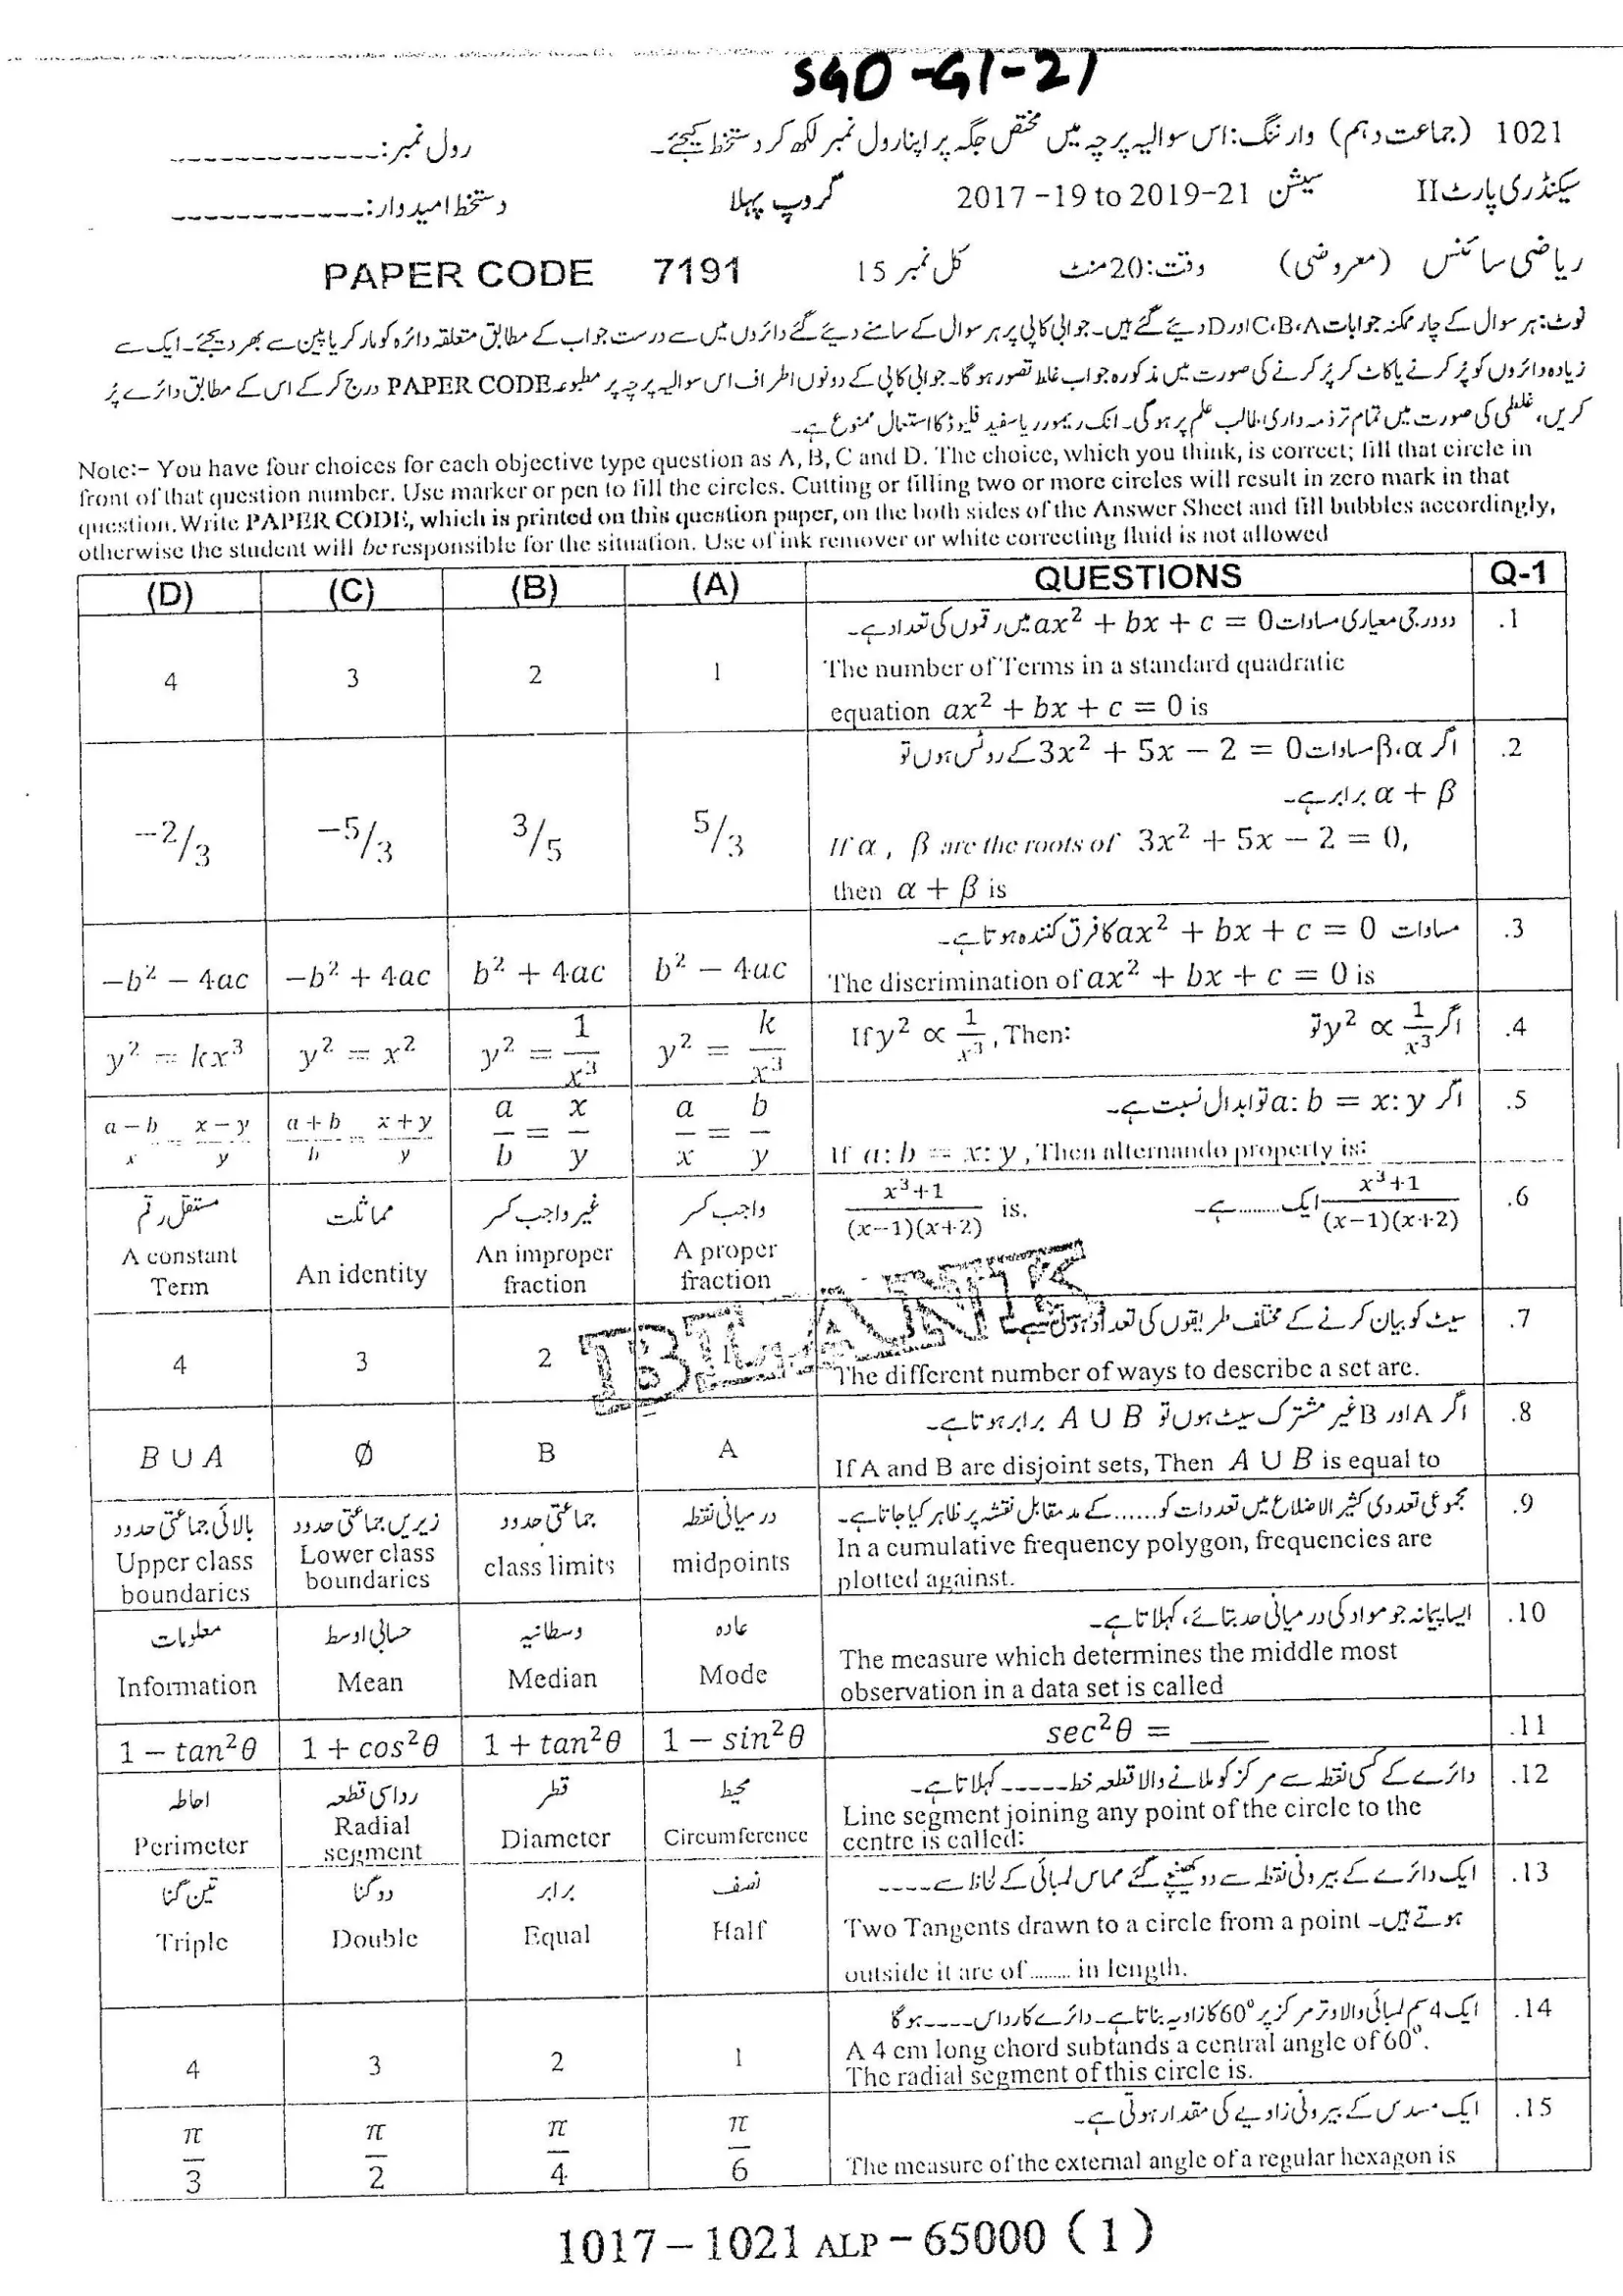 SGD-G1-21
1021 (جماعت دہم) وارننگ: اس سوالیہ پرچہ میں مختص جگہ پر اپنا رول نمبر لکھ کر دستخط کیجئے۔ رول نمبر: -------------
سیکنڈری پارٹ II سیشن 2017-19 to 2019-21 گروپ پہلا دستخط امیدوار: ------------
ریاضی سائنس (معروضی) وقت: 20 منٹ کل نمبر 15 PAPER CODE 7191
نوٹ: ہر سوال کے چار ممکنہ جوابات A، B، C اور D دیئے گئے ہیں۔ جوابی کاپی پر ہر سوال کے سامنے دیئے گئے دائروں میں سے درست جواب کے مطابق متعلقہ دائرہ کو مارکر یا پین سے بھر دیجئے۔ ایک سے
زیادہ دائروں کو پُر کرنے یا کاٹ کر پُر کرنے کی صورت میں مذکورہ جواب غلط تصور ہوگا۔ جوابی کاپی کے دونوں اطراف اس سوالیہ پرچہ پر مطبوعہ PAPER CODE درج کر کے اس کے مطابق دائرے پُر
کریں، غلطی کی صورت میں تمام تر ذمہ داری طالب علم پر ہوگی۔ انک ریموور یا سفید فلیوڈ کا استعمال ممنوع ہے۔
Note:- You have four choices for each objective type question as A, B, C and D. The choice, which you think, is correct; fill that circle in
front of that question number. Use marker or pen to fill the circles. Cutting or filling two or more circles will result in zero mark in that
question. Write PAPER CODE, which is printed on this question paper, on the both sides of the Answer Sheet and fill bubbles accordingly,
otherwise the student will be responsible for the situation. Use of ink remover or white correcting fluid is not allowed
(D) (C) (B) (A) QUESTIONS Q-1
دو درجی معیاری مساوات ax² + bx + c = 0 میں رقموں کی تعداد ہے۔ .1
The number of Terms in a standard quadratic
equation ax² + bx + c = 0 is
4 3 2 1
اگر α، β مساوات 3x² + 5x − 2 = 0 کے روٹس ہوں تو .2
α + β برابر ہے۔
If α , β are the roots of 3x² + 5x − 2 = 0,
then α + β is
−2/3 −5/3 3/5 5/3
مساوات ax² + bx + c = 0 کا فرق کنندہ ہوتا ہے۔ .3
The discrimination of ax² + bx + c = 0 is
−b² − 4ac −b² + 4ac b² + 4ac b² − 4ac
If y² ∝ 1/x³ , Then: اگر y² ∝ 1/x³ تو .4
y² = kx³ y² = x² y² = 1/x³ y² = k/x³
اگر a: b = x: y تو ابدال نسبت ہے۔ .5
If a: b = x: y , Then alternando property is:
a−b/x = x−y/y a+b/b = x+y/y a/b = x/y a/x = b/y
x³+1/(x−1)(x+2) is. x³+1/(x−1)(x+2) ایک ......... ہے۔ .6
مستقل رقم مماثلت غیر واجب کسر واجب کسر
A constant Term An identity An improper fraction A proper fraction
BLANK
سیٹ کو بیان کرنے کے مختلف طریقوں کی تعداد ہوتی ہے۔ .7
The different number of ways to describe a set are.
4 3 2 1
اگر A اور B غیر مشترک سیٹ ہوں تو A ∪ B برابر ہوتا ہے۔ .8
If A and B are disjoint sets, Then A ∪ B is equal to
B ∪ A Ø B A
مجموعی تعددی کثیر الاضلاع میں تعددات کو ...... کے مد مقابل نقشہ پر ظاہر کیا جاتا ہے۔ .9
In a cumulative frequency polygon, frequencies are
plotted against.
بالائی جماعتی حدود زیریں جماعتی حدود جماعتی حدود درمیانی نقطہ
Upper class boundaries Lower class boundaries class limits midpoints
ایسا پیمانہ جو مواد کی درمیانی حد بتائے، کہلاتا ہے۔ .10
The measure which determines the middle most
observation in a data set is called
معلومات حسابی اوسط وسطانیہ عادہ
Information Mean Median Mode
sec²θ = ____ .11
1 − tan²θ 1 + cos²θ 1 + tan²θ 1 − sin²θ
دائرے کے کسی نقطہ سے مرکز کو ملانے والا قطعہ خط ----- کہلاتا ہے۔ .12
Line segment joining any point of the circle to the
centre is called:
احاطہ رداسی قطعہ قطر محیط
Perimeter Radial segment Diameter Circumference
ایک دائرے کے بیرونی نقطہ سے دو کھینچے گئے مماس لمبائی کے لحاظ سے ---- .13
Two Tangents drawn to a circle from a point ہوتے ہیں۔
outside it are of ......... in length.
تین گنا دو گنا برابر نصف
Triple Double Equal Half
ایک 4 سم لمبائی والا وتر مرکز پر 60° کا زاویہ بناتا ہے۔ دائرے کا رداس ---- ہوگا .14
A 4 cm long chord subtands a central angle of 60°.
The radial segment of this circle is.
4 3 2 1
ایک مسدس کے بیرونی زاویے کی مقدار ہوتی ہے۔ .15
The measure of the external angle of a regular hexagon is
π/3 π/2 π/4 π/6
1017-1021 ALP-65000 (1)